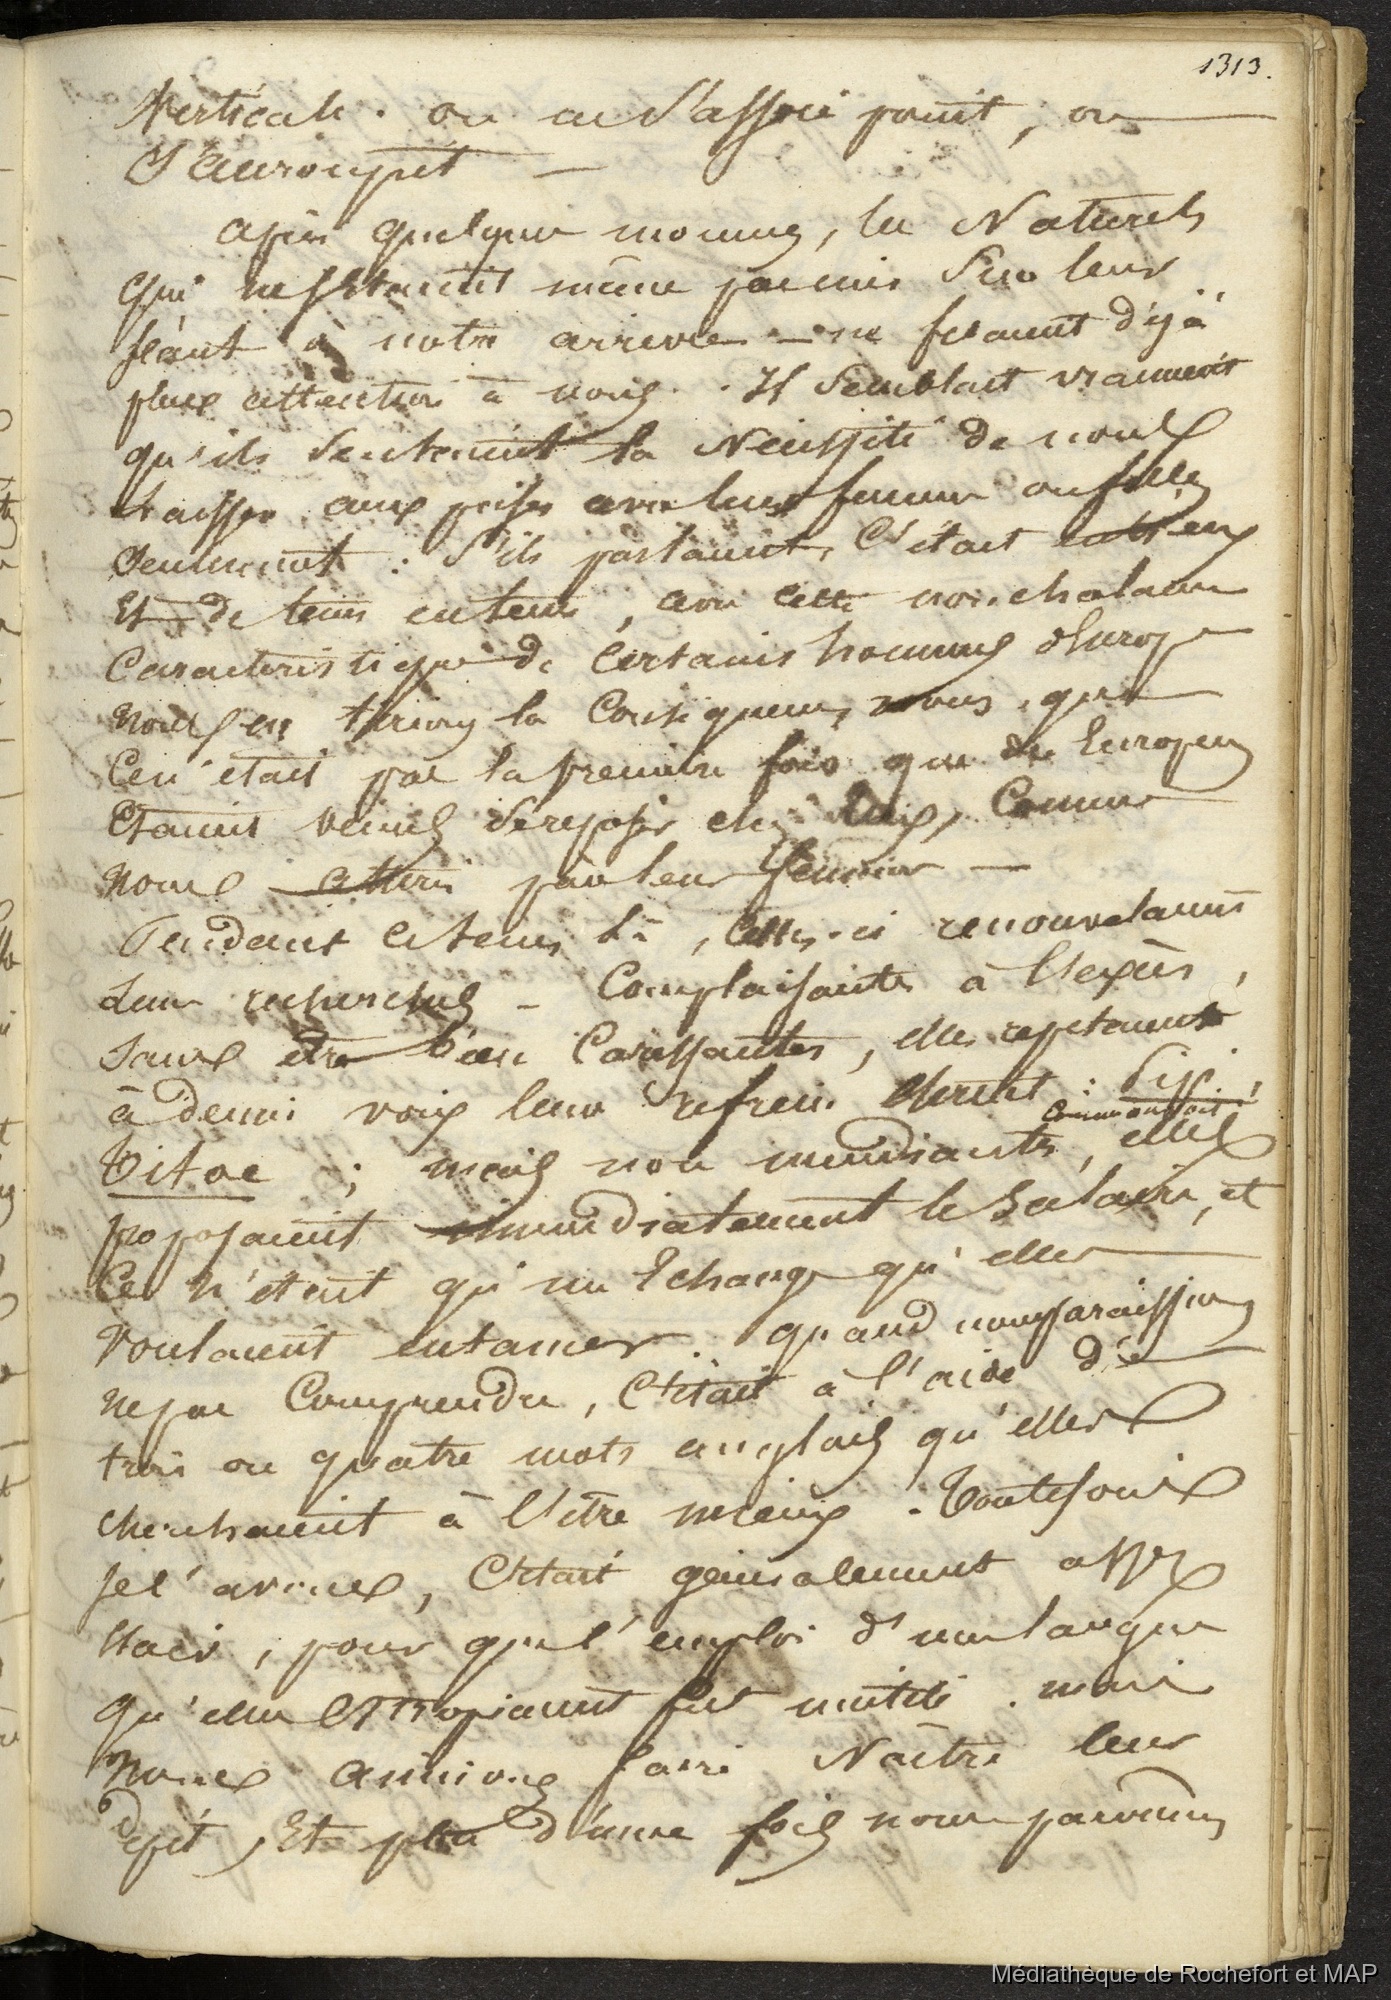 1313.
Verticale. on ne s'assoie point, on
s'accroupit —
après quelques momens, les Naturels
qui ne s'étaient même pas mis sur leur
séant à notre arrivée — ne fesaient déjà
plus attention à nous. Il semblait vraiment
qu'ils sentaient la Nécessité de nous
laisser aux prises avec leurs femmes ou filles
seulement : s'ils parlaient, c'était entr'eux
Et de tems en tems, avec cette nonchalance
Caractéristique de certains hommes d'Europe
nous en tirions la Conséquence, nous, que
Ce n'était pas la première fois que des Européens
Etaient venus se reposer chez Eux, Comme
nous attirés par leurs femmes —
Pendant ce tems là, celles-ci renouvelaient
leurs recherches — Complaisantes à l'excès,
sans être bien Caressantes, elles repetaient
à demi voix leur refrain
Titoe ; mais non mendiantes, elles
comme on sait
proposaient immédiatement le salaire, et
Ce n'était qu'un Echange qu'elles
Voulaient entamer. quand nous paraissions
ne pas Comprendre, C'était à l'aide de
trois ou quatre mots anglais qu'elles
cherchaient à l'être mieux. Toutefois
je l'avoue, C'était généralement assez
clair, pour que l'emploi d'une langue
qu'elles Estropiaient fut inutile. mais
nous aimions faire Naître leur
dépit, Et plus d'une fois nous parvinmes
Médiathèque de Rochefort et MAP